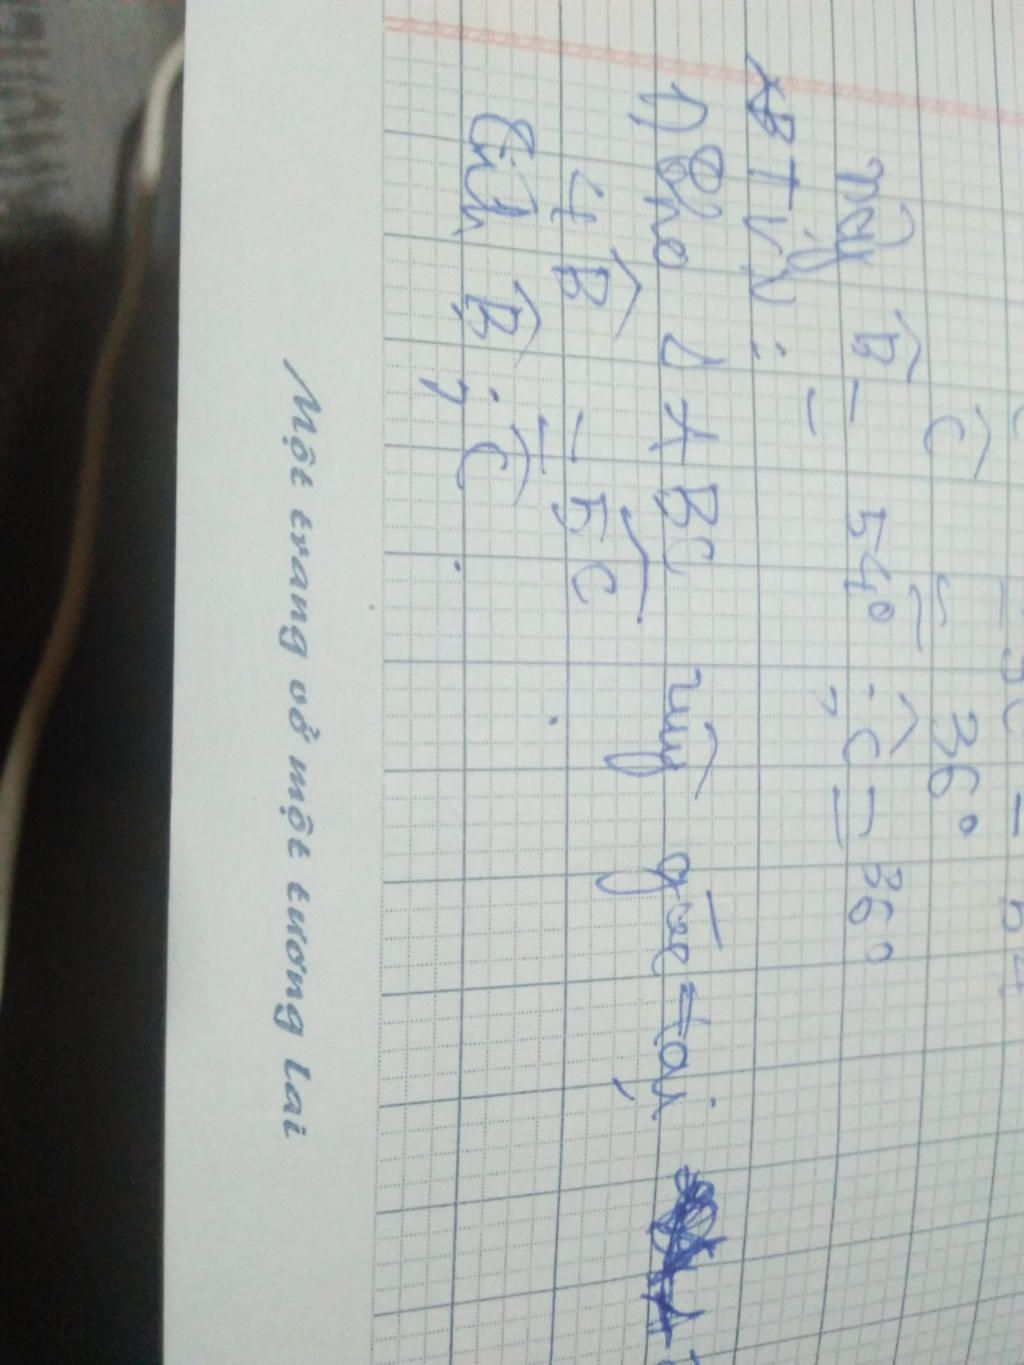 Ĉ = 36°
Vậy B̂ = 54° ; Ĉ = 36°
BTVN :
1) Cho Δ ABC vuông góc tại A
4B̂ = 5Ĉ
Tính B̂ ; Ĉ .
Một trang vở một tương lai